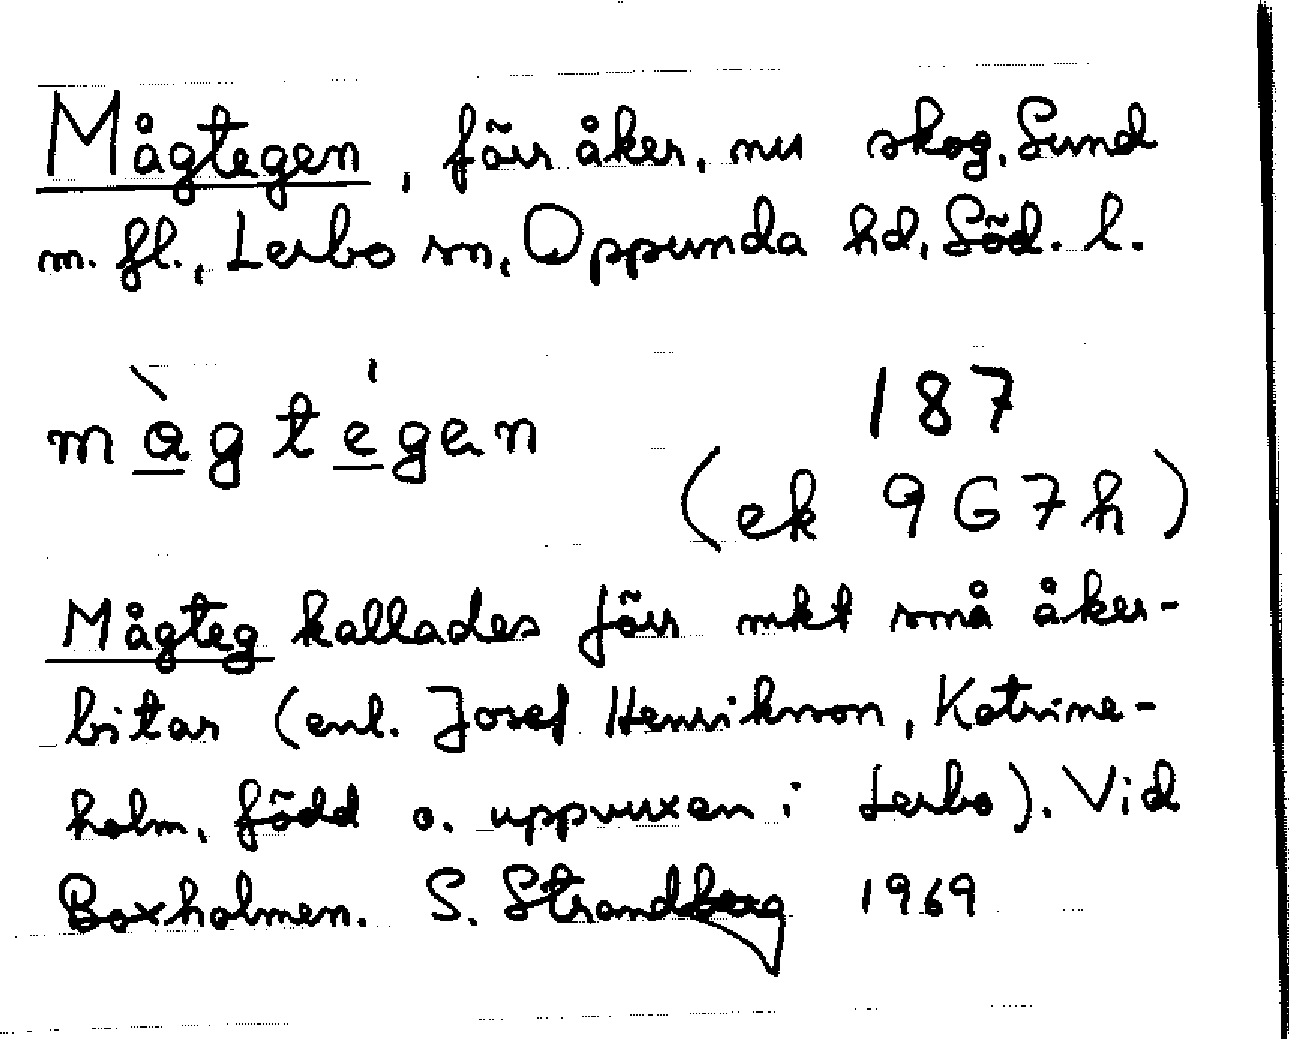 Mågtegen, förr åker, nu skog, Sund
m. fl., Lerbo sn, Oppunda hd, Söd. l.
màgtégen
187
(ek 967h)
Mågteg kallades förr mkt små åker-
bitar (enl. Josef Henrikson, Katrine-
holm, född o. uppvuxen i Lerbo). Vid
Boxholmen. S. Strandberg 1969